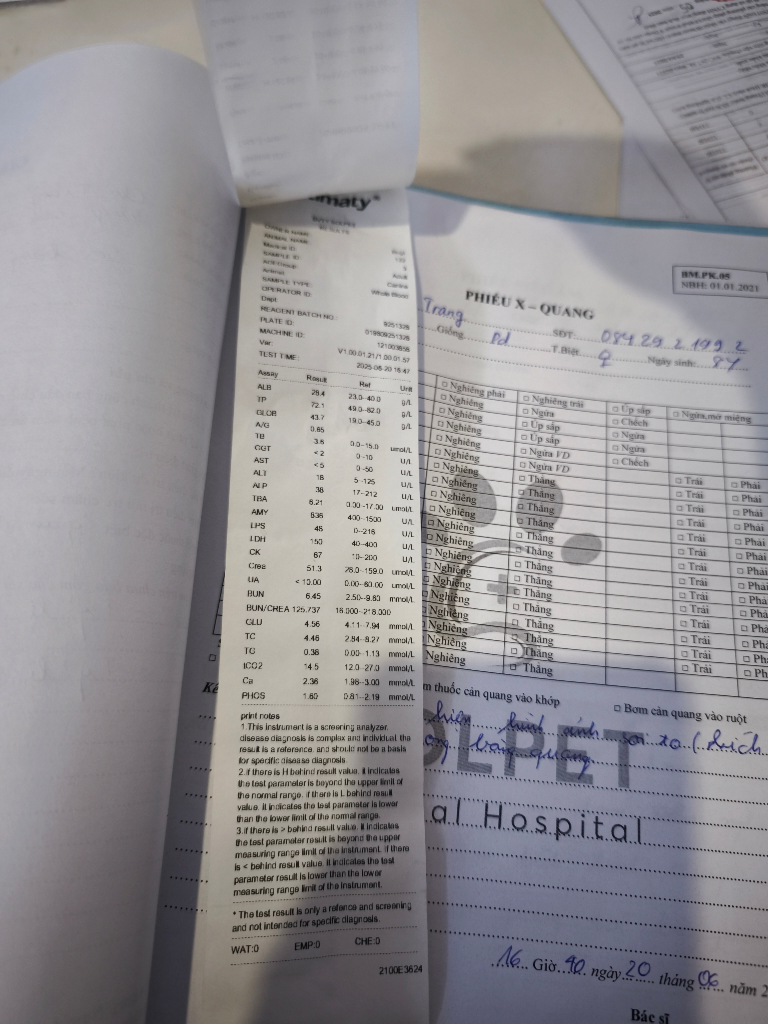 maty®
ANIMAL NAME:
SAMPLE ID:
Adult
Animal Canine
SAMPLE TYPE: Whole Blood
OPERATOR ID:
Dept
REAGENT BATCH NO.:
PLATE ID:
MACHINE ID:
Ver: V1.00.01.21/1.00.01.57
TEST TIME: 2025-06-20 16:47
Assay Result Ref Unit
ALB 28.4 23.0--40.0 g/L
TP 72.1 49.0--82.0 g/L
GLOB 43.7 19.0--45.0 g/L
A/G 0.65
TB 3.6 0.0--15.0 umol/L
GGT < 2 0--10 U/L
AST < 5 0--50 U/L
ALT 18 5--125 U/L
ALP 38 17--212 U/L
TBA 6.21 0.00--17.00 umol/L
AMY 836 400--1500 U/L
LPS 48 0--216 U/L
LDH 150 40--400 U/L
CK 67 10--200 U/L
Crea 51.3 26.0--159.0 umol/L
UA < 10.00 0.00--60.00 umol/L
BUN 6.45 2.50--9.60 mmol/L
BUN/CREA 125.737 16.000--218.000
GLU 4.56 4.11--7.94 mmol/L
TC 4.46 2.84--8.27 mmol/L
TG 0.38 0.00--1.13 mmol/L
tCO2 14.5 12.0--27.0 mmol/L
Ca 2.36 1.98--3.00 mmol/L
PHOS 1.60 0.81--2.19 mmol/L
print notes
1.This instrument is a screening analyzer.
disease diagnosis is complex and individual. the
result is a reference, and should not be a basis
for specific disease diagnosis
2.if there is H behind result value. it indicates
the test parameter is beyond the upper limit of
the normal range. if there is L behind result
value. it indicates the test parameter is lower
than the lower limit of the normal range.
3.if there is > behind result value. it indicates
the test parameter result is beyond the upper
measuring range limit of the instrument. if there
is < behind result value. it indicates the test
parameter result is lower than the lower
measuring range limit of the instrument.
* The test result is only a refence and screening
and not intended for specific diagnosis.
WAT:0 EMP:0 CHE:0
2100E3624
BM.PK.05
NBH: 01.01.2021
PHIẾU X – QUANG
Trang
SĐT: 084 29 2 199 2
Giống: Pd T.Biệt: ♀ Ngày sinh: 8Y
□ Nghiêng phải □ Nghiêng trái □ Úp sấp □ Ngửa, mở miệng
□ Nghiêng □ Ngửa □ Chếch
□ Nghiêng □ Úp sấp □ Ngửa
□ Nghiêng □ Úp sấp □ Ngửa
□ Nghiêng □ Ngửa VD □ Chếch
□ Nghiêng □ Ngửa VD
□ Nghiêng □ Thẳng □ Trái □ Phải
□ Nghiêng □ Thẳng □ Trái □ Phải
□ Nghiêng □ Thẳng □ Trái □ Phải
□ Nghiêng □ Thẳng □ Trái □ Phải
□ Nghiêng □ Thẳng □ Trái □ Phải
□ Nghiêng □ Thẳng □ Trái □ Phải
□ Nghiêng □ Thẳng □ Trái □ Phải
□ Nghiêng □ Thẳng □ Trái □ Phải
□ Nghiêng □ Thẳng □ Trái □ Phải
Nghiêng □ Thẳng □ Trái □ Phả
m thuốc cản quang vào khớp □ Bơm cản quang vào ruột
Kế
hiện hình ảnh sỏi to (kích
ong bàng quang
OLPET
al Hospital
16 Giờ 40 ngày 20 tháng 06 năm 2
Bác sĩ